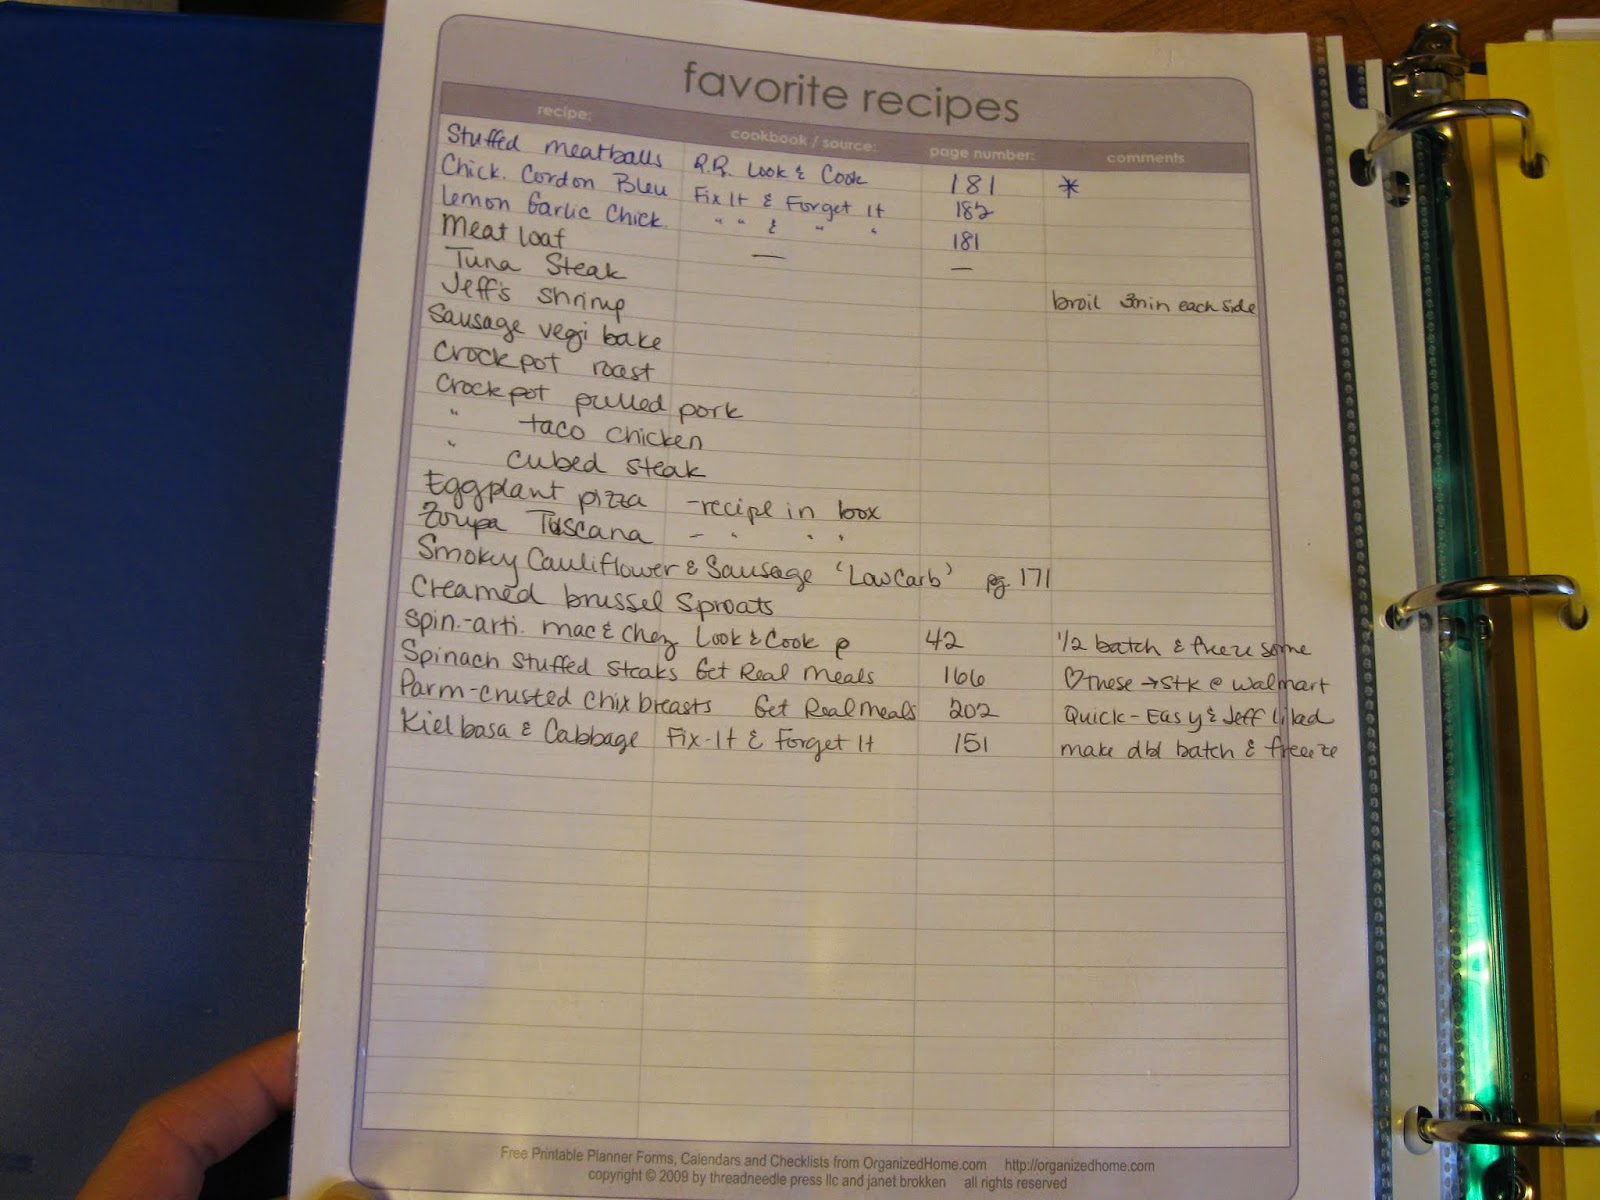 favorite recipes
recipe: cookbook / source: page number: comments
Stuffed meatballs R.R. Look & Cook 181 *
Chick. Cordon Bleu Fix It & Forget It 182
Lemon Garlic Chick. " " & " " 181
Meat loaf — —
Tuna Steak broil 3min each side
Jeff's shrimp
Sausage vegi bake
Crockpot roast
Crockpot pulled pork
" taco chicken
" cubed steak
Eggplant pizza - recipe in box
Zoupa Tuscana - " " "
Smoky Cauliflower & Sausage 'Low Carb' pg. 171
Creamed brussel sproats
Spin.-arti. mac & chez Look & Cook p 42 1/2 batch & freeze some
Spinach Stuffed Steaks Get Real Meals 166 ♡ These → Stk @ Walmart
Parm-crusted chix breasts Get Real Meals 202 Quick-Easy & Jeff liked
Kielbasa & Cabbage Fix-It & Forget It 151 make dbl batch & freeze
Free Printable Planner Forms, Calendars and Checklists from OrganizedHome.com http://organizedhome.com
copyright © 2009 by threadneedle press llc and janet brokken all rights reserved